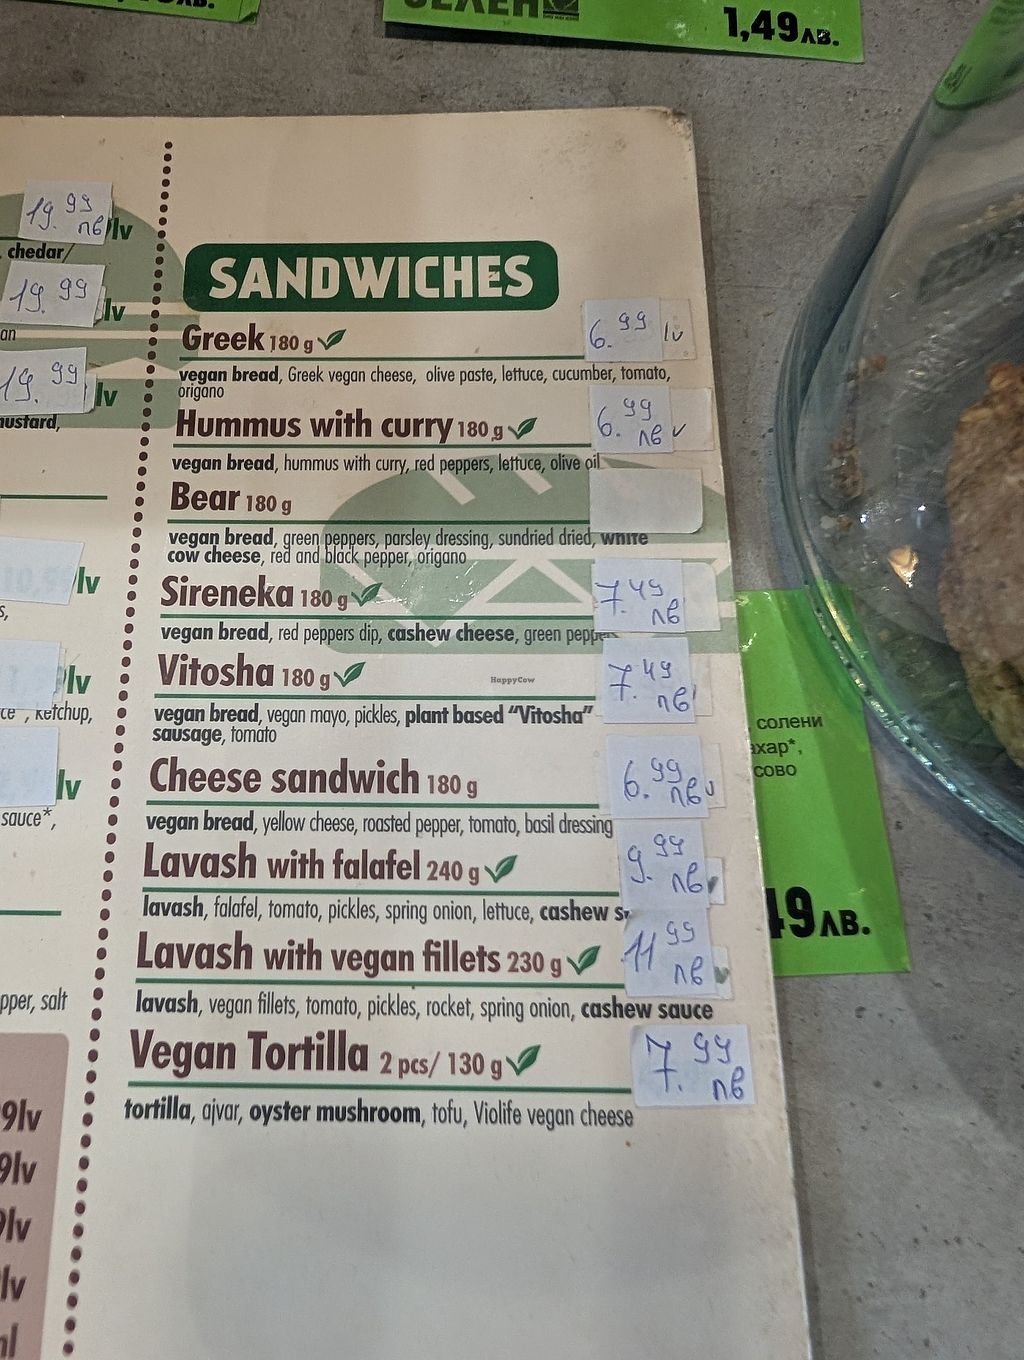 1,49 ЛВ.
19.99 лв lv
chedar/
19.99 lv
an
19.99 lv
ustard,
lv
s,
lv
ketchup,
lv
sauce*,
pper, salt
9lv
9lv
lv
lv
SANDWICHES
Greek 180 g 6.99 lv
vegan bread, Greek vegan cheese, olive paste, lettuce, cucumber, tomato,
origano
Hummus with curry 180 g 6.99 лв
vegan bread, hummus with curry, red peppers, lettuce, olive oil
Bear 180 g
vegan bread, green peppers, parsley dressing, sundried dried, white
cow cheese, red and black pepper, origano
Sireneka 180 g 7.49 лв
vegan bread, red peppers dip, cashew cheese, green peppe
Vitosha 180 g 7.49 лв
HappyCow
vegan bread, vegan mayo, pickles, plant based “Vitosha”
sausage, tomato
Cheese sandwich 180 g 6.99 лв
vegan bread, yellow cheese, roasted pepper, tomato, basil dressing
Lavash with falafel 240 g 9.99 лв
lavash, falafel, tomato, pickles, spring onion, lettuce, cashew s
Lavash with vegan fillets 230 g 11.99 лв
lavash, vegan fillets, tomato, pickles, rocket, spring onion, cashew sauce
Vegan Tortilla 2 pcs/ 130 g 7.99 лв
tortilla, ajvar, oyster mushroom, tofu, Violife vegan cheese
солени
ахар*,
сово
49 ЛВ.